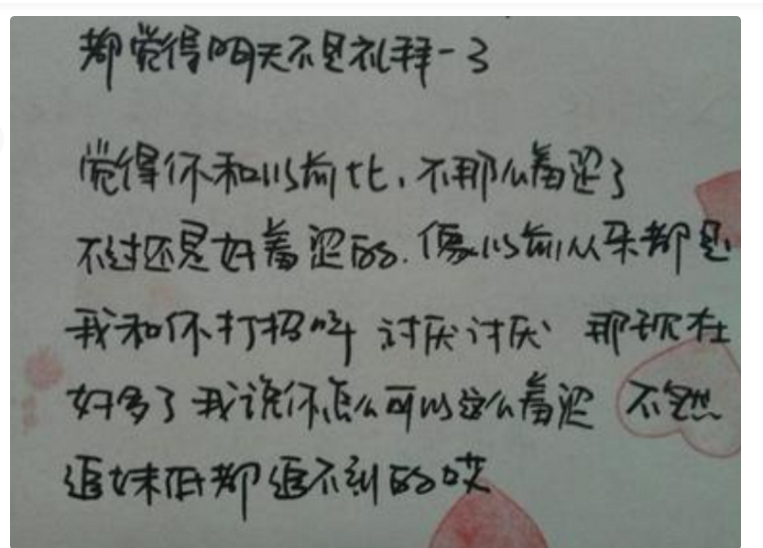 都觉得明天不是礼拜一了
觉得你和以前比，不那么羞涩了
不过还是好羞涩的.像以前从来都是
我和你打招呼 讨厌讨厌 那现在
好多了 我说你怎么可以这么羞涩 不然
追妹都追不到的哎